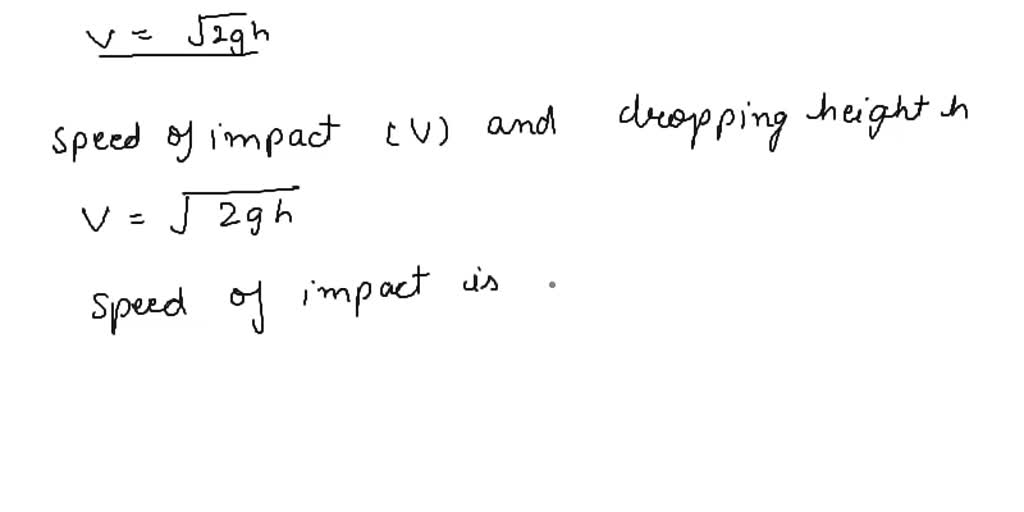 v = √2gh
speed of impact (v) and dropping height h
v = √2gh
speed of impact is